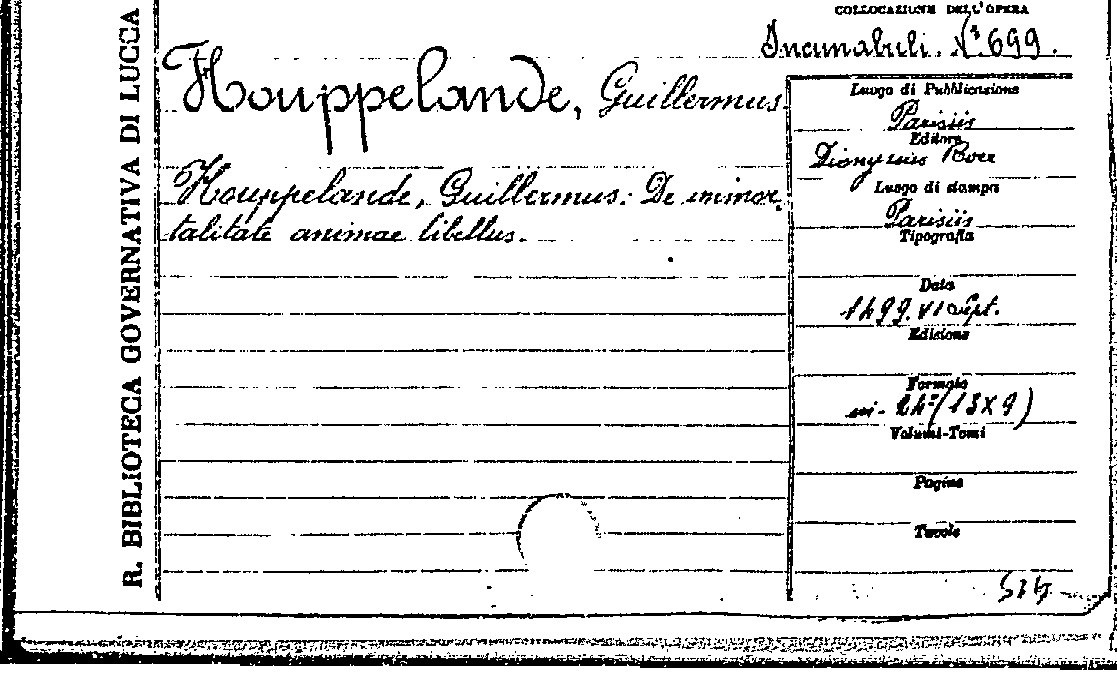 R. BIBLIOTECA GOVERNATIVA DI LUCCA
COLLOCAZIONE DELL'OPERA
Incunabuli. N.° 699.
Houppelande, Guillermus.
Houppelande, Guillermus: De immor-
talitate animae libellus.
Luogo di Pubblicazione
Parisiis
Editore
Dionysius Roce
Luogo di stampa
Parisiis
Tipografia
Data
1499. VI Sept.
Edizione
Formato
in-24° (13X9)
Volumi-Tomi
Pagine
Tavole